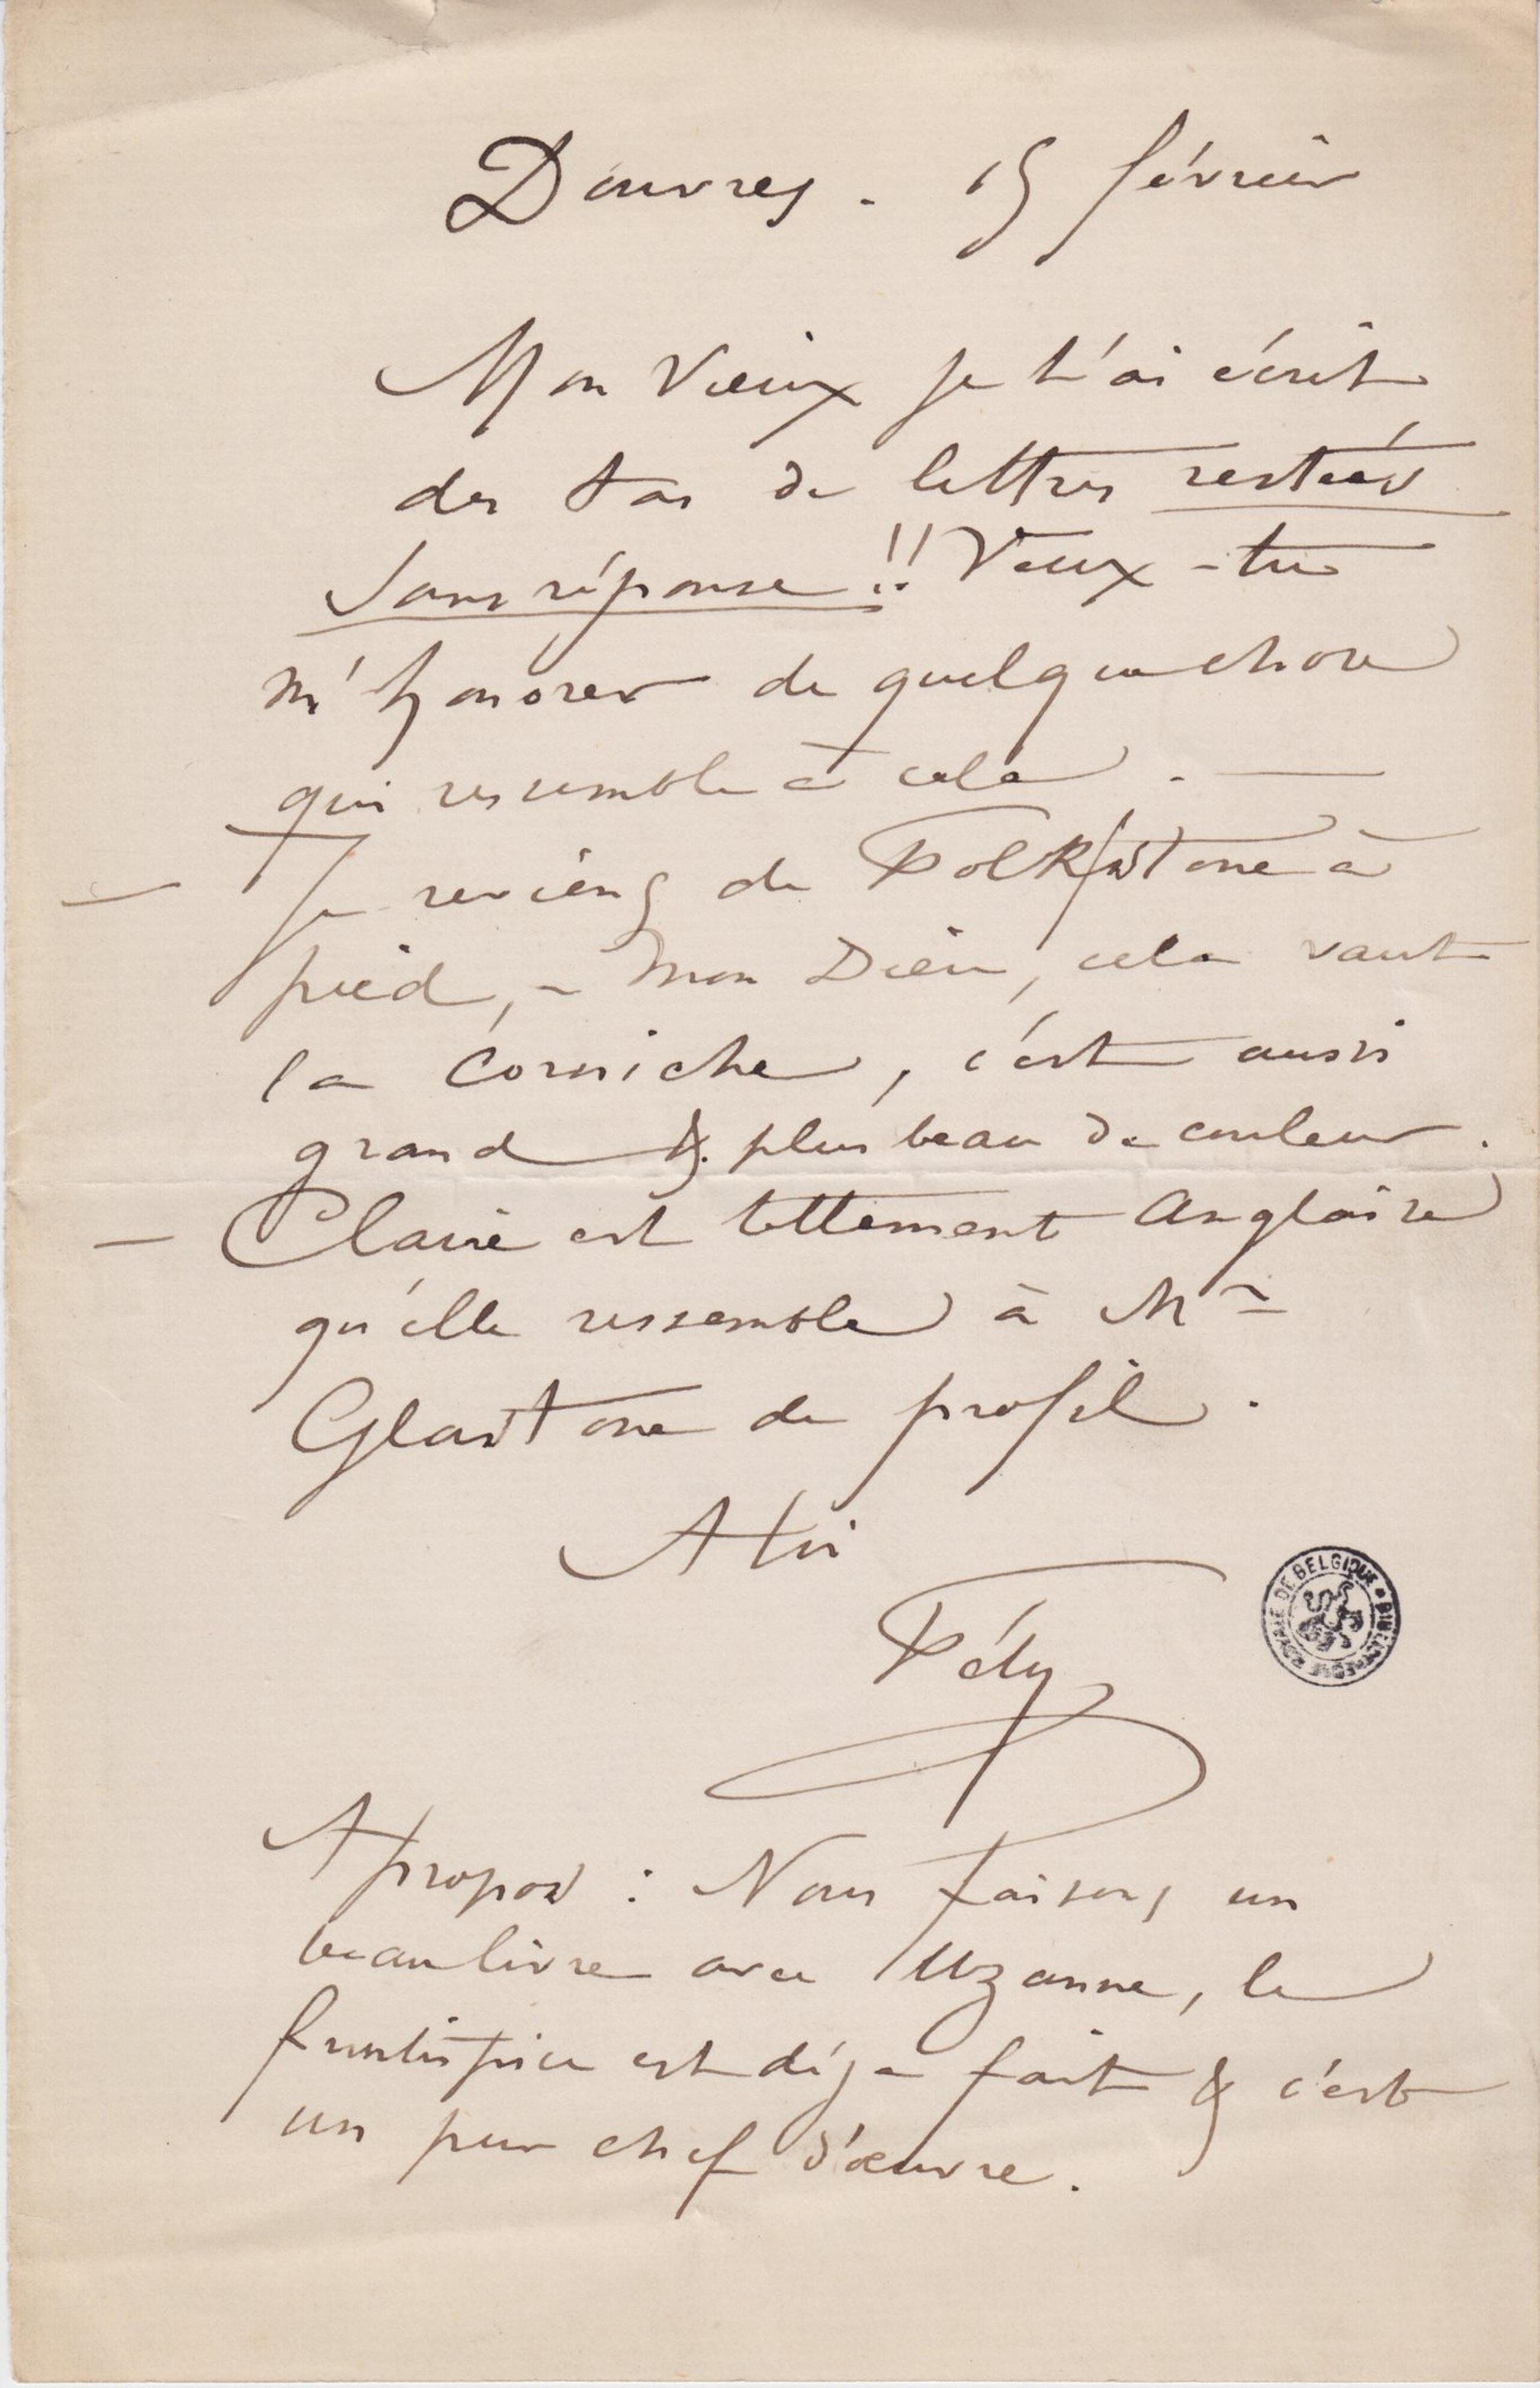 Douvres. 15 février
Mon Vieux je t'ai écrit
des tas de lettres restées
sans réponse!! Veux-tu
m'honorer de quelque chose
qui ressemble à cela. —
— Je reviens de Folkstone à
pied, – mon Dieu, cela vaut
la Corniche, c'est aussi
grand & plus beau de couleur.
— Claire est tellement Anglaise
qu'elle ressemble à Mr
Glastone de profil.
A toi
Fély
A propos : Nous faisons un
beau livre avec Uzanne, le
frontispice est déjà fait & c'est
un pur chef d'œuvre.
BIBLIOTHÈQUE ROYALE DE BELGIQUE